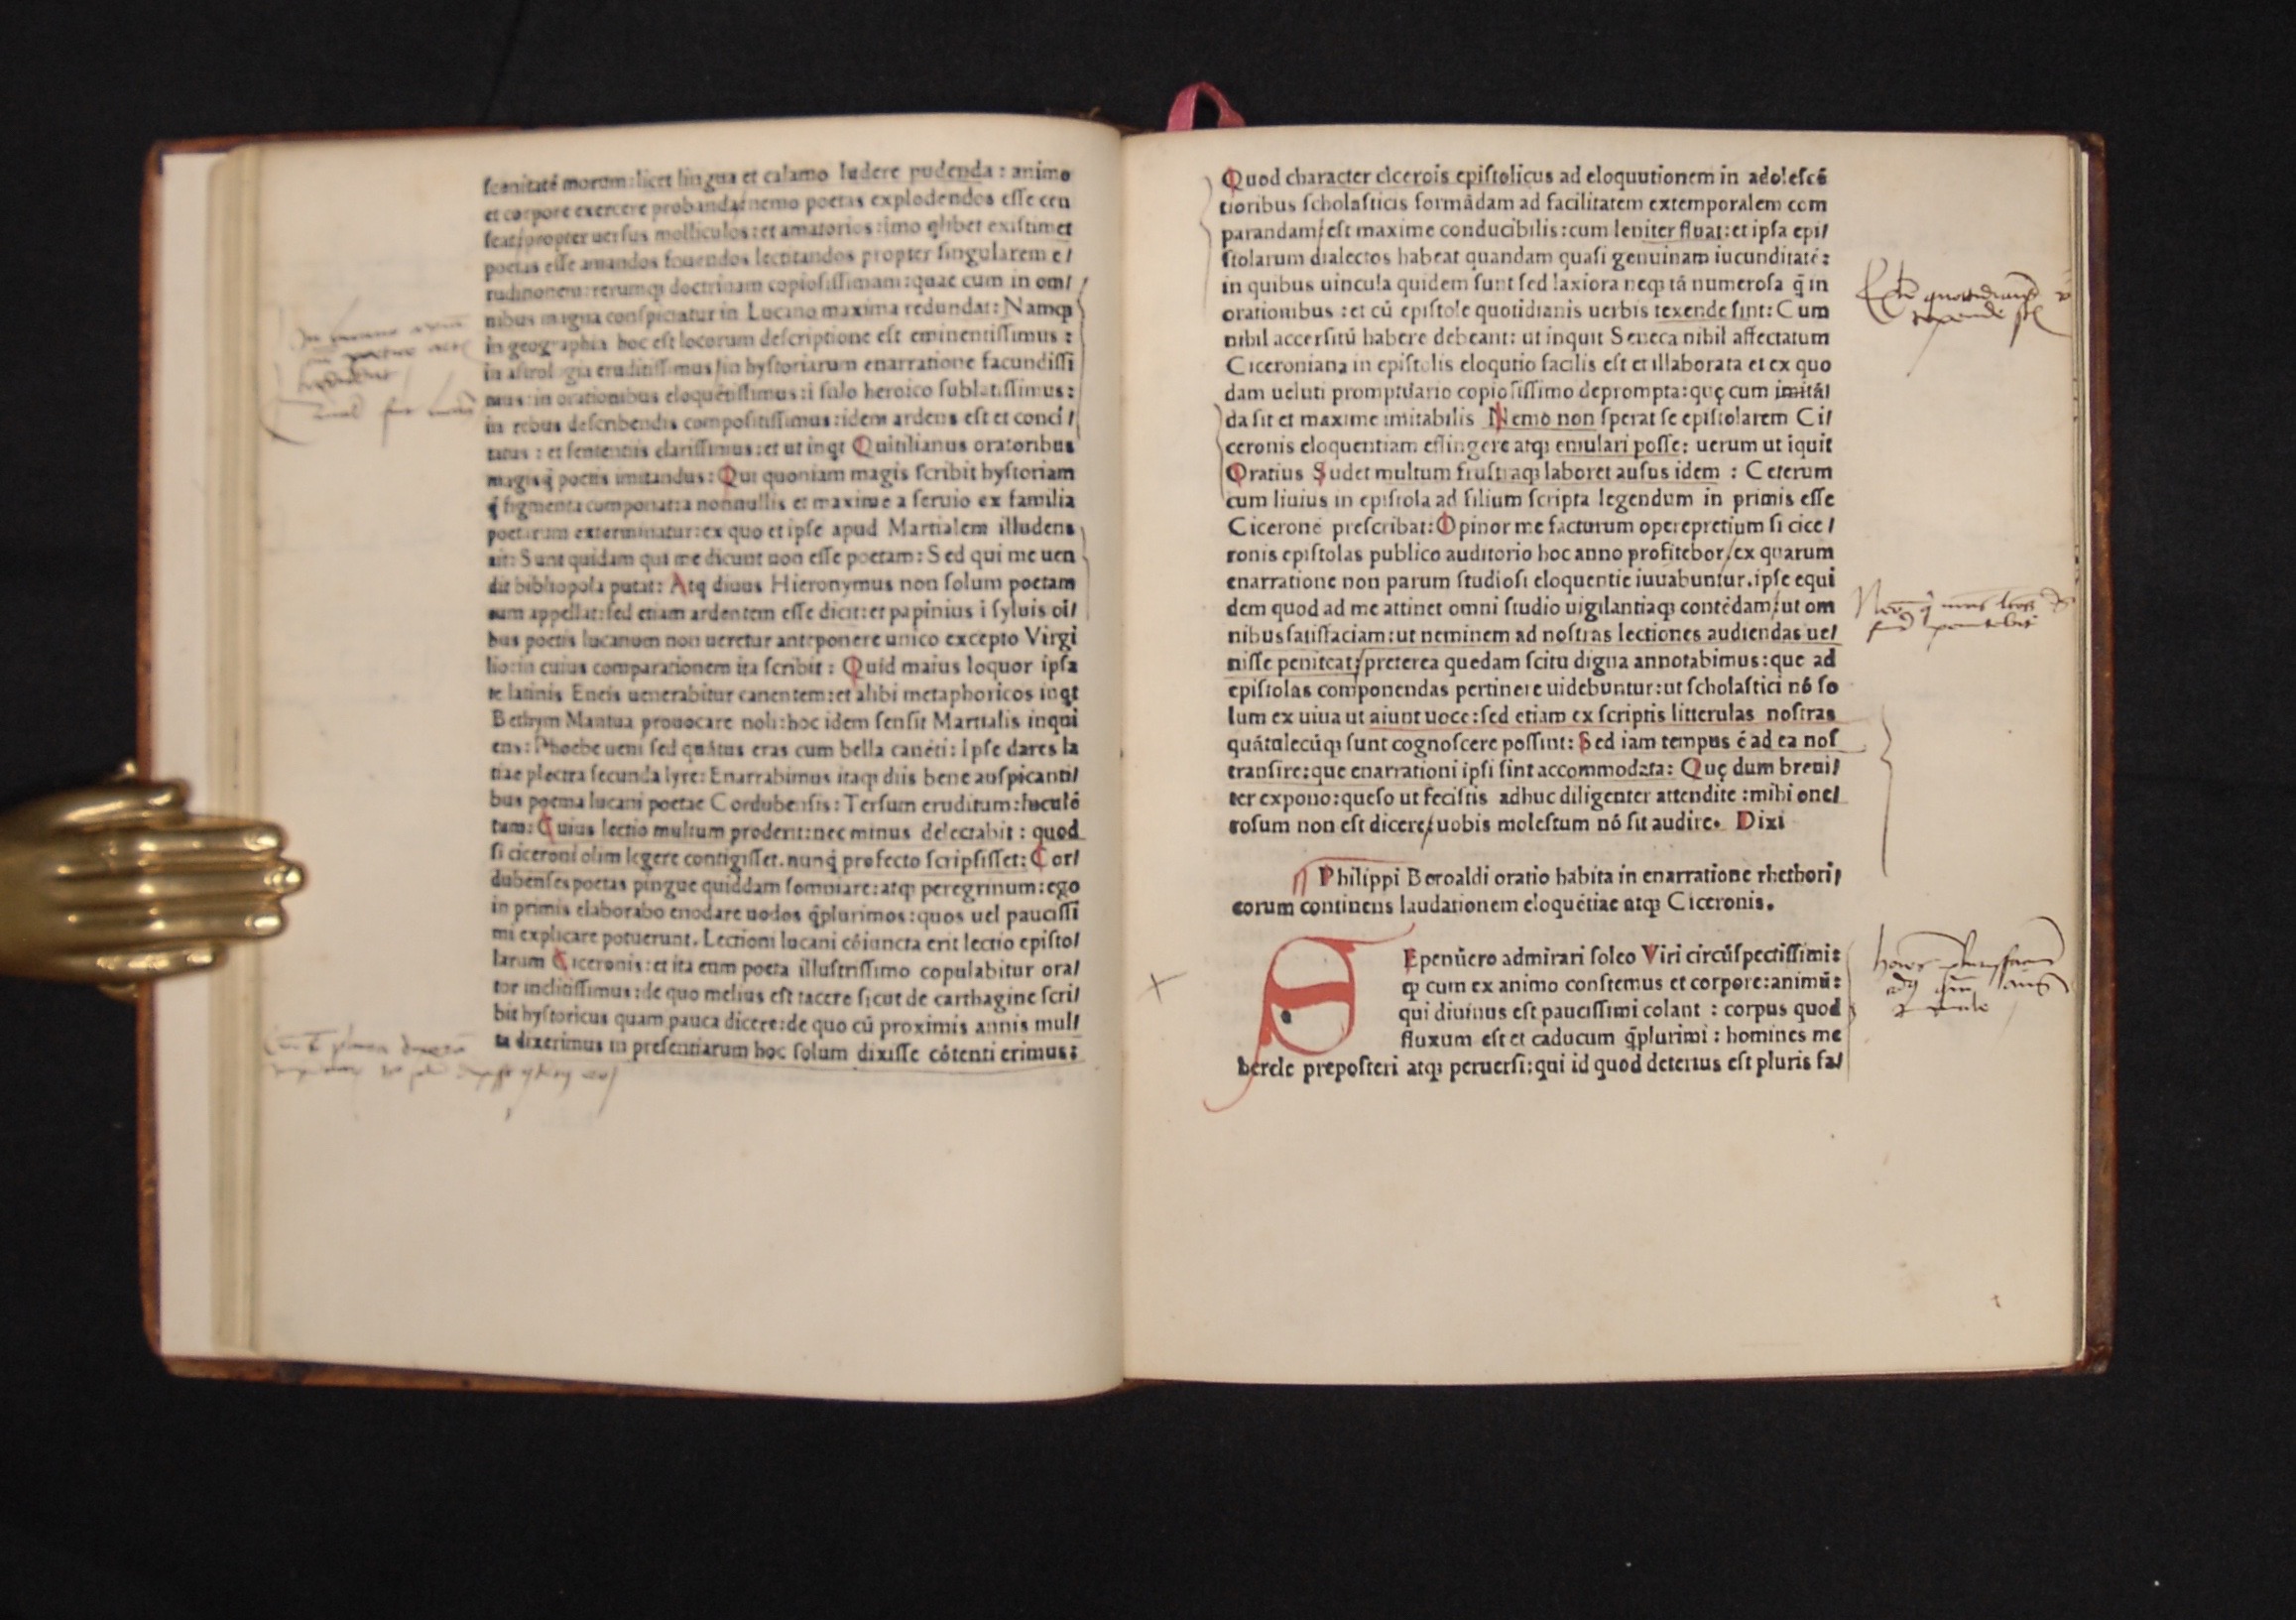 scenitatē morum: licet lingua et calamo ludere pudenda: animo
et corpore exercere probanda/ nemo poetas explodendos esse cen
seat/ propter uersus molliculos: et amatorios: imo qlibet existimet
poetas esse amandos fouendos lectitandos propter singularem e/
ruditionem: rerumq; doctrinam copiosissimam: quae cum in om/
nibus magna conspiciatur in Lucano maxima redundat: Namq;
in geographia hoc est locorum descriptione est eminentissimus:
in astrologia eruditissimus/ in hystoriarum enarratione facundissi
mus: in orationibus eloquētissimus: i stilo heroico sublatissimus:
in rebus describendis compositissimus: idem ardens est et conci/
tatus: et sententiis clarissimus: et ut inqt Quitilianus oratoribus
magisq̄ poetis imitandus: Qui quoniam magis scribit hystoriam
q̄ figmenta componat: a nonnullis et maxime a seruio ex familia
poetarum exterminatur: ex quo et ipse apud Martialem illudens
ait: Sunt quidam qui me dicunt non esse poetam: Sed qui me uen
dit bibliopola putat: Atq diuus Hieronymus non solum poetam
eum appellat: sed etiam ardentem esse dicit: et papinius i syluis oi/
bus poetis lucanum non ueretur anteponere unico excepto Virgi
lio: in cuius comparationem ita scribit: Quid maius loquor ipsa
te latinis Eneis uenerabitur canentem: et alibi metaphoricos inqt
Bethym Mantua prouocare noli: hoc idem sensit Martialis inqui
ens: Phoebe ueni sed quātus eras cum bella canēti: Ipse dares la
tiae plectra secunda lyre: Enarrabimus itaq; diis bene auspicanti/
bus poema lucani poetae Cordubensis: Tersum eruditum: luculē
tum: Cuius lectio multum proderit: nec minus delectabit: quod
si ciceroni olim legere contigisset. nunq̄ profecto scripsisset: Cor/
dubenses poetas pingue quiddam somniare: atq; peregrinum: ego
in primis elaborabo enodare nodos q̄plurimos: quos uel paucissi
mi explicare potuerunt. Lectioni lucani cōiuncta erit lectio episto/
larum Ciceronis: et ita eum poeta illustrissimo copulabitur ora/
tor inclitissimus: de quo melius est tacere sicut de carthagine scri/
bit hystoricus quam pauca dicere: de quo cū proximis annis mul/
ta dixerimus in presentiarum hoc solum dixisse cōtenti erimus:
Quod character cicerois epistolicus ad eloquutionem in adolescē
tioribus scholasticis formādam ad facilitatem extemporalem com
parandam/ est maxime conducibilis: cum leniter fluat: et ipsa epi/
stolarum dialectos habeat quandam quasi genuinam iucunditatē:
in quibus uincula quidem sunt sed laxiora neq; tā numerosa q̄ in
orationibus: et cū epistole quotidianis uerbis texende sint: Cum
nihil accersitū habere debeant: ut inquit Seneca nihil affectatum
Ciceroniana in epistolis eloqutio facilis est et illaborata et ex quo
dam ueluti promptuario copiosissimo deprompta: quę cum imitā/
da sit et maxime imitabilis Nemo non sperat se epistolarem Ci/
ceronis eloquentiam effingere atq; emulari posse: uerum ut iquit
Oratius Sudet multum frustraq; laboret ausus idem: Ceterum
cum liuius in epistola ad filium scripta legendum in primis esse
Ciceronē prescribat: Opinor me facturum operepretium si cice/
ronis epistolas publico auditorio hoc anno profitebor/ ex quarum
enarratione non parum studiosi eloquentie iuuabuntur. ipse equi
dem quod ad me attinet omni studio uigilantiaq; contēdam/ ut om
nibus satissaciam: ut neminem ad nostras lectiones audiendas ue/
nisse peniteat: preterea quedam scitu digna annotabimus: que ad
epistolas componendas pertinere uidebuntur: ut scholastici nō so
lum ex uiua ut aiunt uoce: sed etiam ex scriptis litterulas nostras
quātulecūq; sunt cognoscere possint: Sed iam tempus ē ad ea nos
transire: que enarrationi ipsi sint accommodata: Quę dum breui/
ter expono: queso ut fecistis adhuc diligenter attendite: mihi one/
rosum non est dicere/ uobis molestum nō sit audire. Dixi
Philippi Beroaldi oratio habita in enarratione rhethori/
corum continens laudationem eloquētiae atq; Ciceronis.
SEpenūero admirari soleo Viri circūspectissimi:
q; cum ex animo constemus et corpore: animū:
qui diuinus est paucissimi colant: corpus quod
fluxum est et caducum q̄plurimi: homines me
hercle preposteri atq; peruersi: qui id quod deterius est pluris fa/